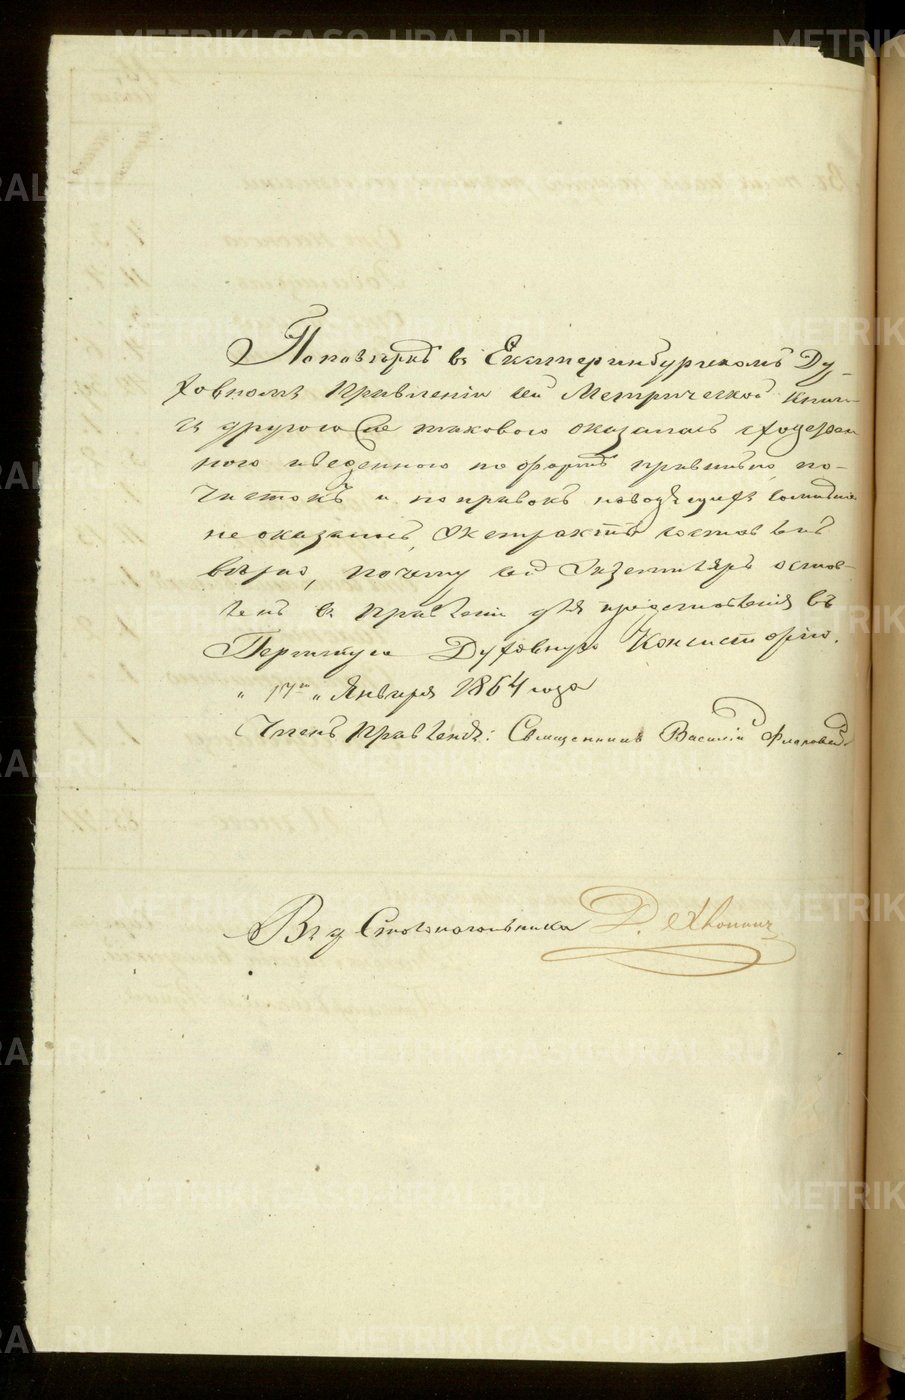 По поверке въ Екатеринбургскомъ Ду-
ховномъ Правленіи сей Метрической книги
съ другою таковою оказалась сходствен
ною и веденною по формѣ правильно, по-
чистокъ и поправокъ наводящихъ сомнѣніе
не оказалось, Экстрактъ составленъ
вѣрно, почему сей Экземпляръ остав-
ленъ въ Правленіи для представленія въ
Пермскую Духовную Консисторію.
„ 17го „ Января 1864 года
Членъ Правленія: Священникъ Василій
Въ д Столоначальника
METRIKI.GASO-URAL.RU